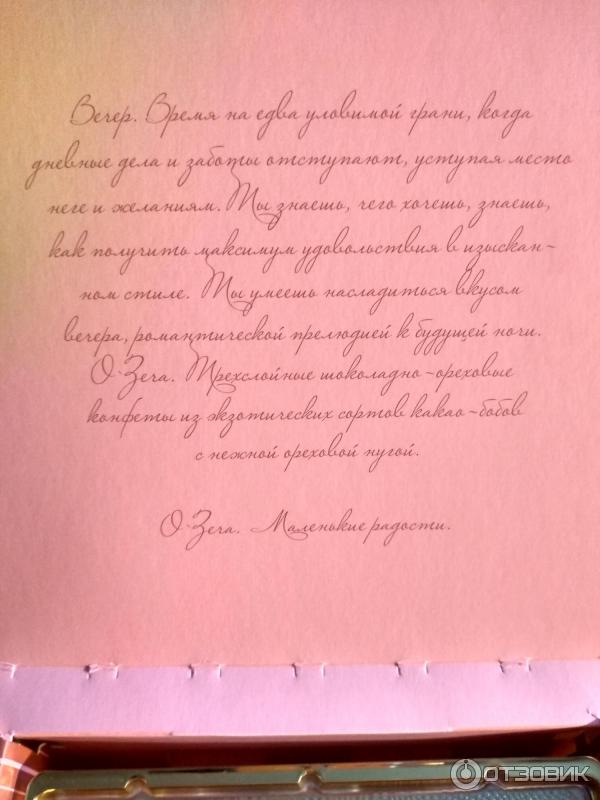 Вечер. Время на едва уловимой грани, когда
дневные дела и заботы отступают, уступая место
неге и желаниям. Ты знаешь, чего хочешь, знаешь,
как получить максимум удовольствия в изыскан-
ном стиле. Ты умеешь насладиться вкусом
вечера, романтической прелюдией к будущей ночи.
О'Зера. Трехслойные шоколадно-ореховые
конфеты из экзотических сортов какао-бобов
с нежной ореховой нугой.
О'Зера. Маленькие радости.
ОТЗОВИК